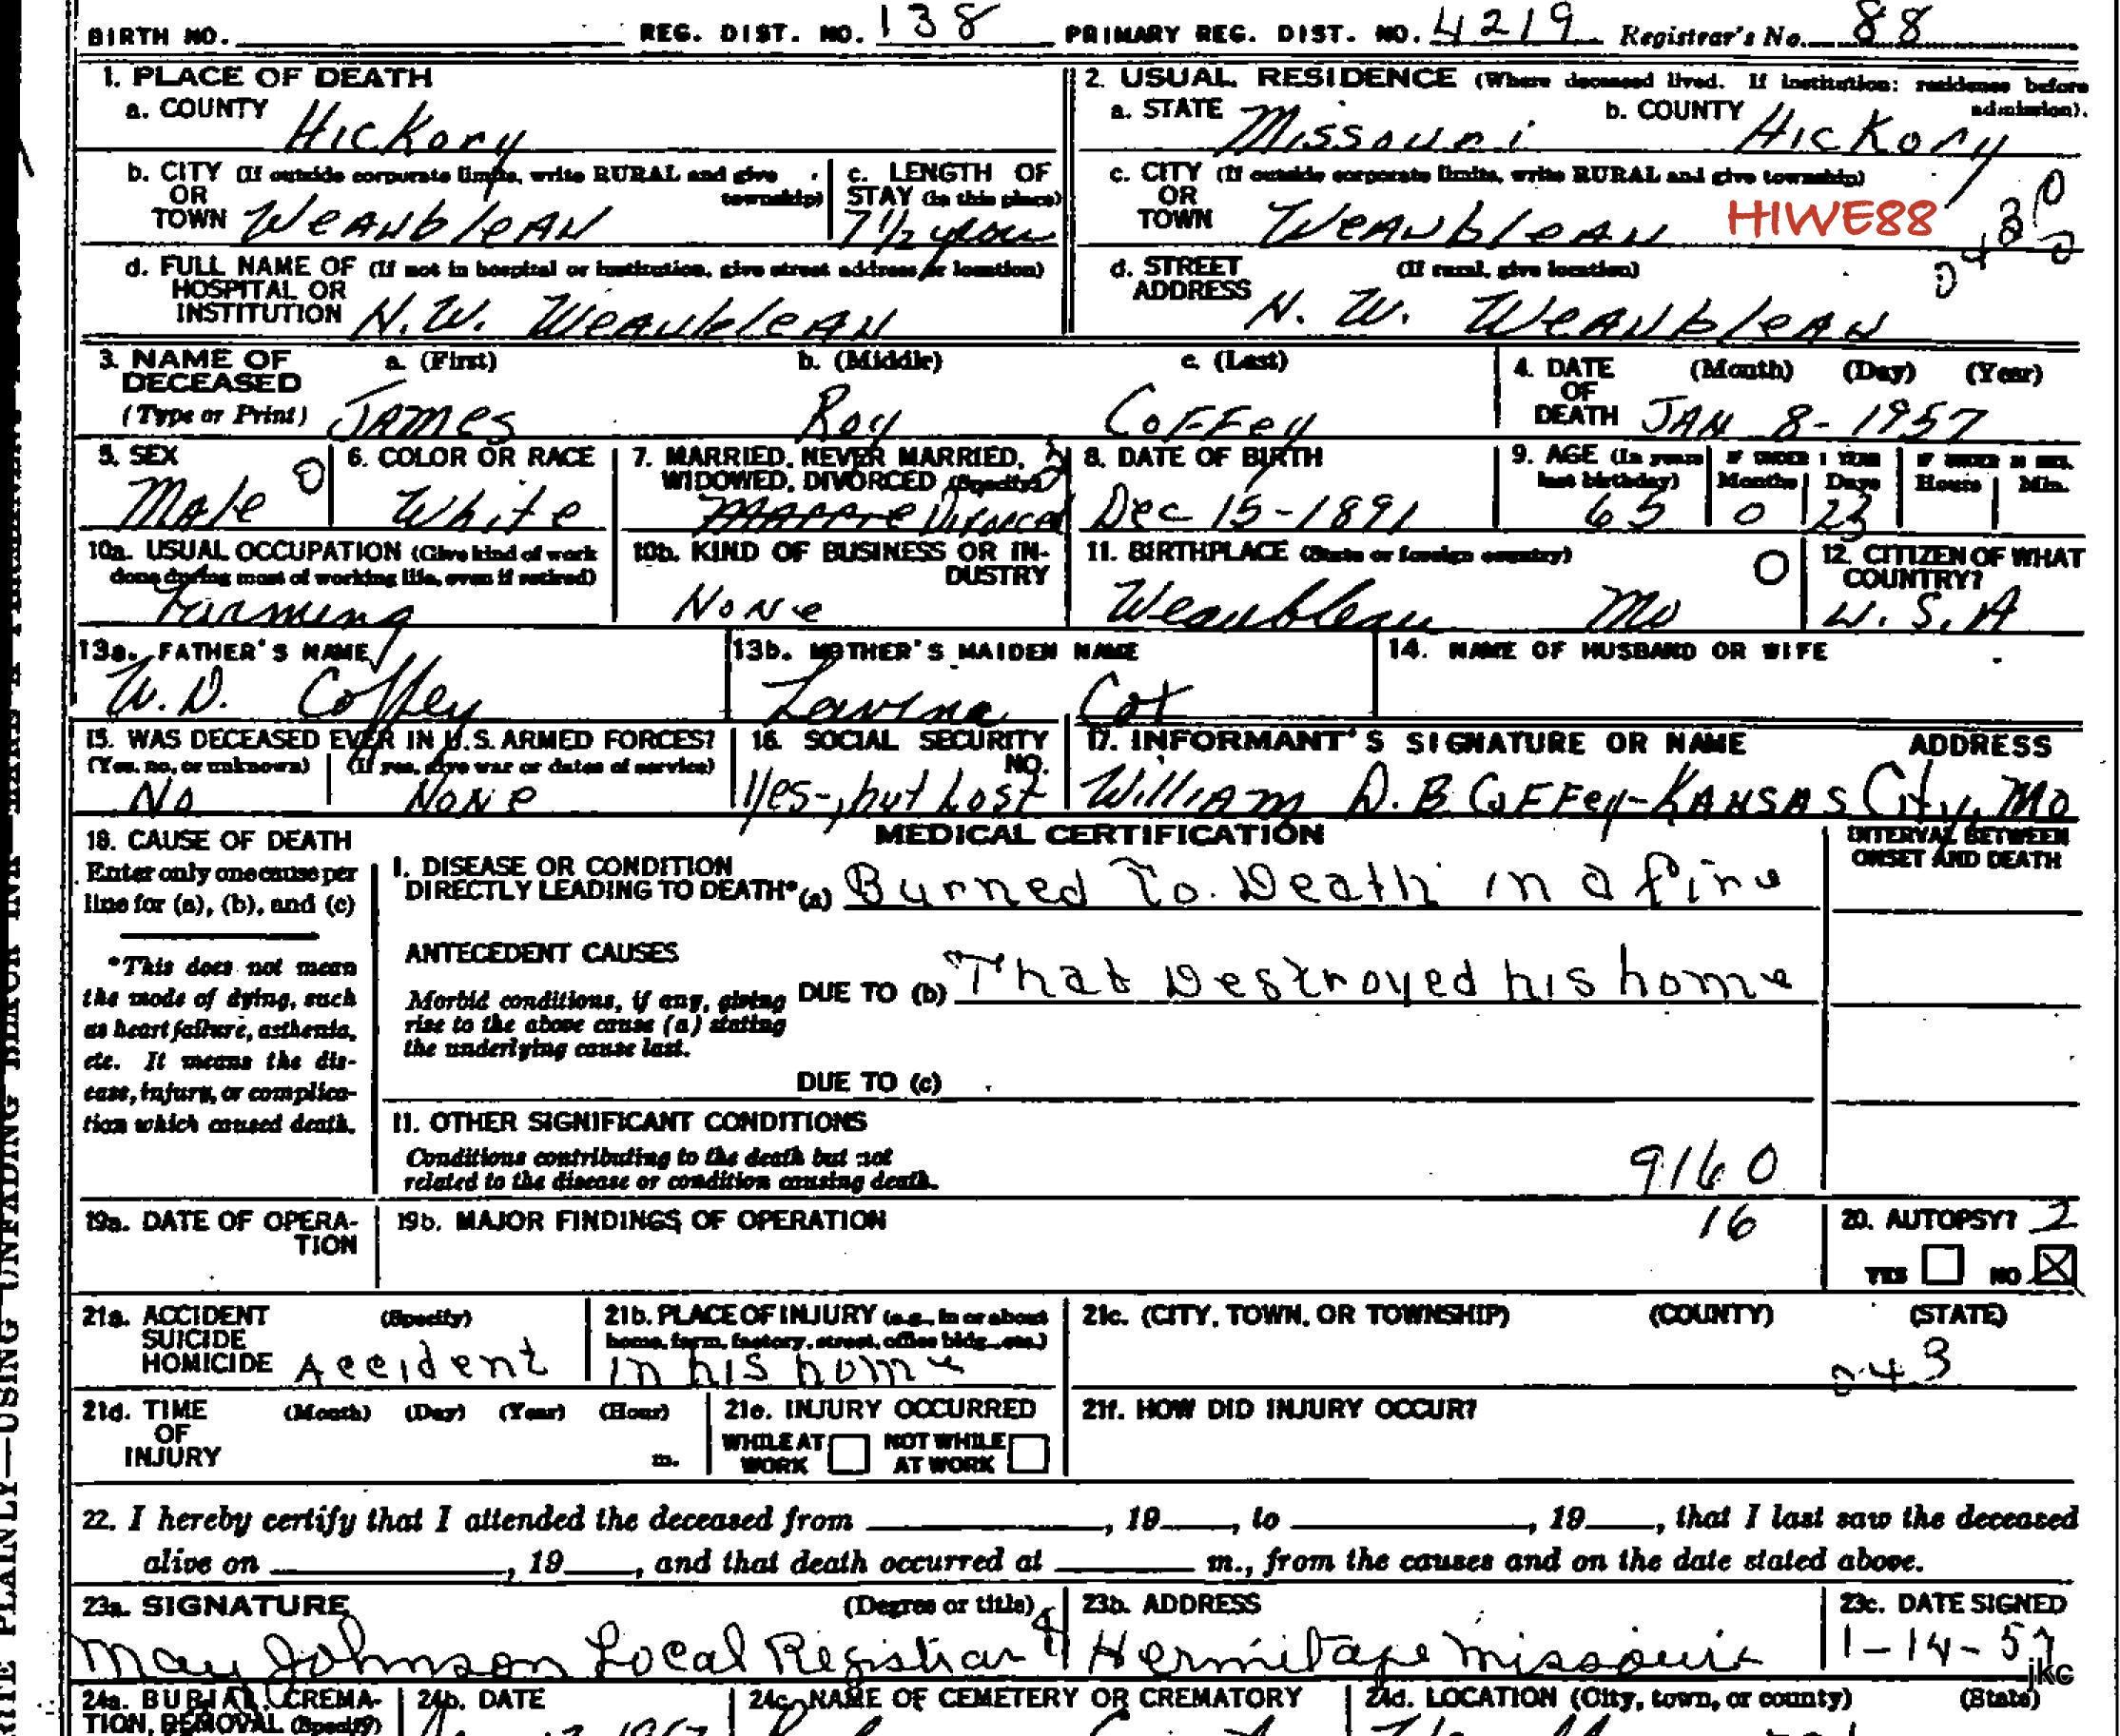 BIRTH NO. REG. DIST. NO. 138 PRIMARY REG. DIST. NO. 4219 Registrar's No. 88
1. PLACE OF DEATH
a. COUNTY Hickory
2. USUAL RESIDENCE (Where deceased lived. If institution: residence before admission).
a. STATE Missouri b. COUNTY Hickory
b. CITY (If outside corporate limits, write RURAL and give township)
OR
TOWN Weaubleau
c. LENGTH OF
STAY (in this place)
7 1/2 years
c. CITY (If outside corporate limits, write RURAL and give township)
OR
TOWN Weaubleau HIWE88
d. FULL NAME OF (If not in hospital or institution, give street address or location)
HOSPITAL OR
INSTITUTION N.W. Weaubleau
d. STREET (If rural, give location)
ADDRESS N. W. Weaubleau
3. NAME OF DECEASED
(Type or Print)
a. (First) b. (Middle) c. (Last)
James Roy Coffey
4. DATE OF DEATH (Month) (Day) (Year)
JAN 8-1957
5. SEX
Male 0
6. COLOR OR RACE
White
7. MARRIED, NEVER MARRIED,
WIDOWED, DIVORCED (Specify)
Divorced
8. DATE OF BIRTH
Dec 15-1891
9. AGE (In years last birthday) 65
IF UNDER 1 YEAR
Months 0 Days 23
IF UNDER 24 HRS.
Hours Min.
10a. USUAL OCCUPATION (Give kind of work
done during most of working life, even if retired)
Farming
10b. KIND OF BUSINESS OR IN-
DUSTRY
None
11. BIRTHPLACE (State or foreign country)
Weaubleau Mo 0
12. CITIZEN OF WHAT
COUNTRY?
U. S. A
13a. FATHER'S NAME
W. D. Coffey
13b. MOTHER'S MAIDEN NAME
Lavina Cox
14. NAME OF HUSBAND OR WIFE
15. WAS DECEASED EVER IN U.S. ARMED FORCES?
(Yes, no, or unknown) (If yes, give war or dates of service)
No None
16. SOCIAL SECURITY
NO.
Yes-, but Lost
17. INFORMANT'S SIGNATURE OR NAME ADDRESS
William D. B Coffey-Kansas City, Mo
18. CAUSE OF DEATH
Enter only one cause per
line for (a), (b), and (c)
*This does not mean
the mode of dying, such
as heart failure, asthenia,
etc. It means the dis-
ease, injury, or complica-
tion which caused death.
MEDICAL CERTIFICATION
INTERVAL BETWEEN
ONSET AND DEATH
I. DISEASE OR CONDITION
DIRECTLY LEADING TO DEATH* (a) Burned To. Death in a fire
ANTECEDENT CAUSES
Morbid conditions, if any, giving
rise to the above cause (a) stating
the underlying cause last.
DUE TO (b) That Destroyed his home
DUE TO (c)
II. OTHER SIGNIFICANT CONDITIONS
Conditions contributing to the death but not
related to the disease or condition causing death.
9160
19a. DATE OF OPERA-
TION
19b. MAJOR FINDINGS OF OPERATION 16
20. AUTOPSY? 2
YES NO
21a. ACCIDENT (Specify)
SUICIDE
HOMICIDE Accident
21b. PLACE OF INJURY (e.g., in or about
home, farm, factory, street, office bldg., etc.)
in his home
21c. (CITY, TOWN, OR TOWNSHIP) (COUNTY) (STATE)
043
21d. TIME (Month) (Day) (Year) (Hour)
OF
INJURY m.
21e. INJURY OCCURRED
WHILE AT
WORK
NOT WHILE
AT WORK
21f. HOW DID INJURY OCCUR?
22. I hereby certify that I attended the deceased from , 19 , to , 19 , that I last saw the deceased
alive on , 19 , and that death occurred at m., from the causes and on the date stated above.
23a. SIGNATURE (Degree or title)
May Johnson Local Registrar
23b. ADDRESS
Hermitage Missouri
23c. DATE SIGNED
1-14-57
jkc
24a. BURIAL, CREMA-
TION, REMOVAL (Specify)
24b. DATE
24c. NAME OF CEMETERY OR CREMATORY
24d. LOCATION (City, town, or county) (State)